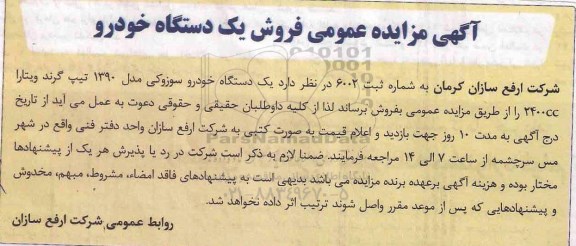 آگهی مزایده عمومی فروش یک دستگاه خودرو
شرکت ارفع سازان کرمان به شماره ثبت ۶۰۰۲ در نظر دارد یک دستگاه خودرو سوزوکی مدل ۱۳۹۰ تیپ گرند ویتارا
۲۴۰۰cc را از طریق مزایده عمومی بفروش برساند لذا از کلیه داوطلبان حقیقی و حقوقی دعوت به عمل می آید از تاریخ
درج آگهی به مدت ۱۰ روز جهت بازدید و اعلام قیمت به صورت کتبی به شرکت ارفع سازان واحد دفتر فنی واقع در شهر
مس سرچشمه از ساعت ۷ الی ۱۴ مراجعه فرمایند. ضمنا لازم به ذکر است شرکت در رد یا پذیرش هر یک از پیشنهادها
مختار بوده و هزینه آگهی برعهده برنده مزایده می باشد بدیهی است به پیشنهادهای فاقد امضاء، مشروط، مبهم، مخدوش
و پیشنهادهایی که پس از موعد مقرر واصل شوند ترتیب اثر داده نخواهد شد.
روابط عمومی شرکت ارفع سازان
ParsNamadData